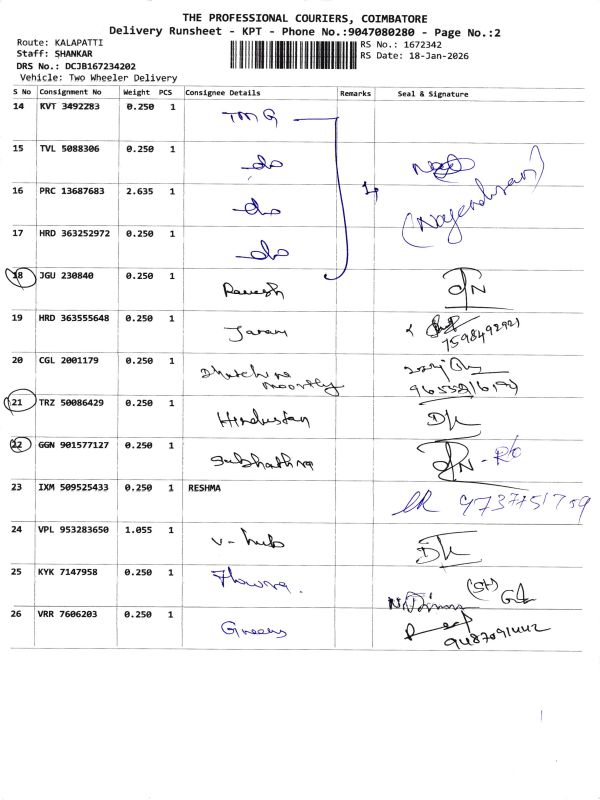 THE PROFESSIONAL COURIERS, COIMBATORE
Delivery Runsheet - KPT - Phone No.:9047080280 - Page No.:2
Route: KALAPATTI
Staff: SHANKAR
DRS No.: DCJB167234202
Vehicle: Two Wheeler Delivery
RS No.: 1672342
RS Date: 18-Jan-2026
S No Consignment No Weight PCS Consignee Details Remarks Seal & Signature
14 KVT 3492283 0.250 1 TMG
15 TVL 5088306 0.250 1 do
16 PRC 13687683 2.635 1 do
(Nagendran)
17 HRD 363252972 0.250 1 do
18 JGU 230840 0.250 1 Ramesh DN
19 HRD 363555648 0.250 1 Jaram
7598492921
20 CGL 2001179 0.250 1
moorthy
21 TRZ 50086429 0.250 1 Hindustan
22 GGN 901577127 0.250 1 Subhathra DN - R/o
23 IXM 509525433 0.250 1 RESHMA
24 VPL 953283650 1.055 1 V-hub
25 KYK 7147958 0.250 1
26 VRR 7606203 0.250 1 Greens
9487091442